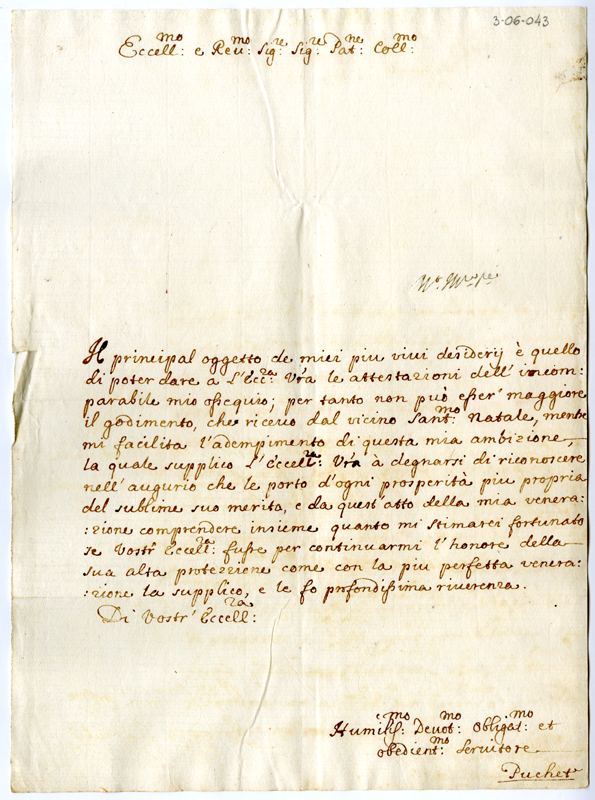 3-06-043
Eccell:mo e Reu:mo Sig:re Sig:re Pat:ne Coll:mo
Il principal oggetto de miei piu vivi desiderij è quello
di poter dare a L'Ecc:za Vr̃a le attestazioni dell'incom:
parabile mio ossequio; per tanto non può esser maggiore
il godimento, che riceuo dal vicino Sant:mo Natale, mentre
mi facilita l'adempimento di questa mia ambizione,
la quale supplico L'Eccell:za Vr̃a à degnarsi di riconoscere
nell'augurio che le porto d'ogni prosperità piu propria
del sublime suo merito, e da quest'atto della mia venera:
:zione comprendere insieme quanto mi stimarei fortunato
se Vostr'Eccell:za fusse per continuarmi l'honore della
sua alta protezzione come con la piu perfetta venera:
:zione la supplico, e le fo pnfondissima riuerenza.
Di Vostr'Eccell:za
Humiliss:mo Deuot:mo Obligat:mo et
obedient:mo Seruitore
Puchet